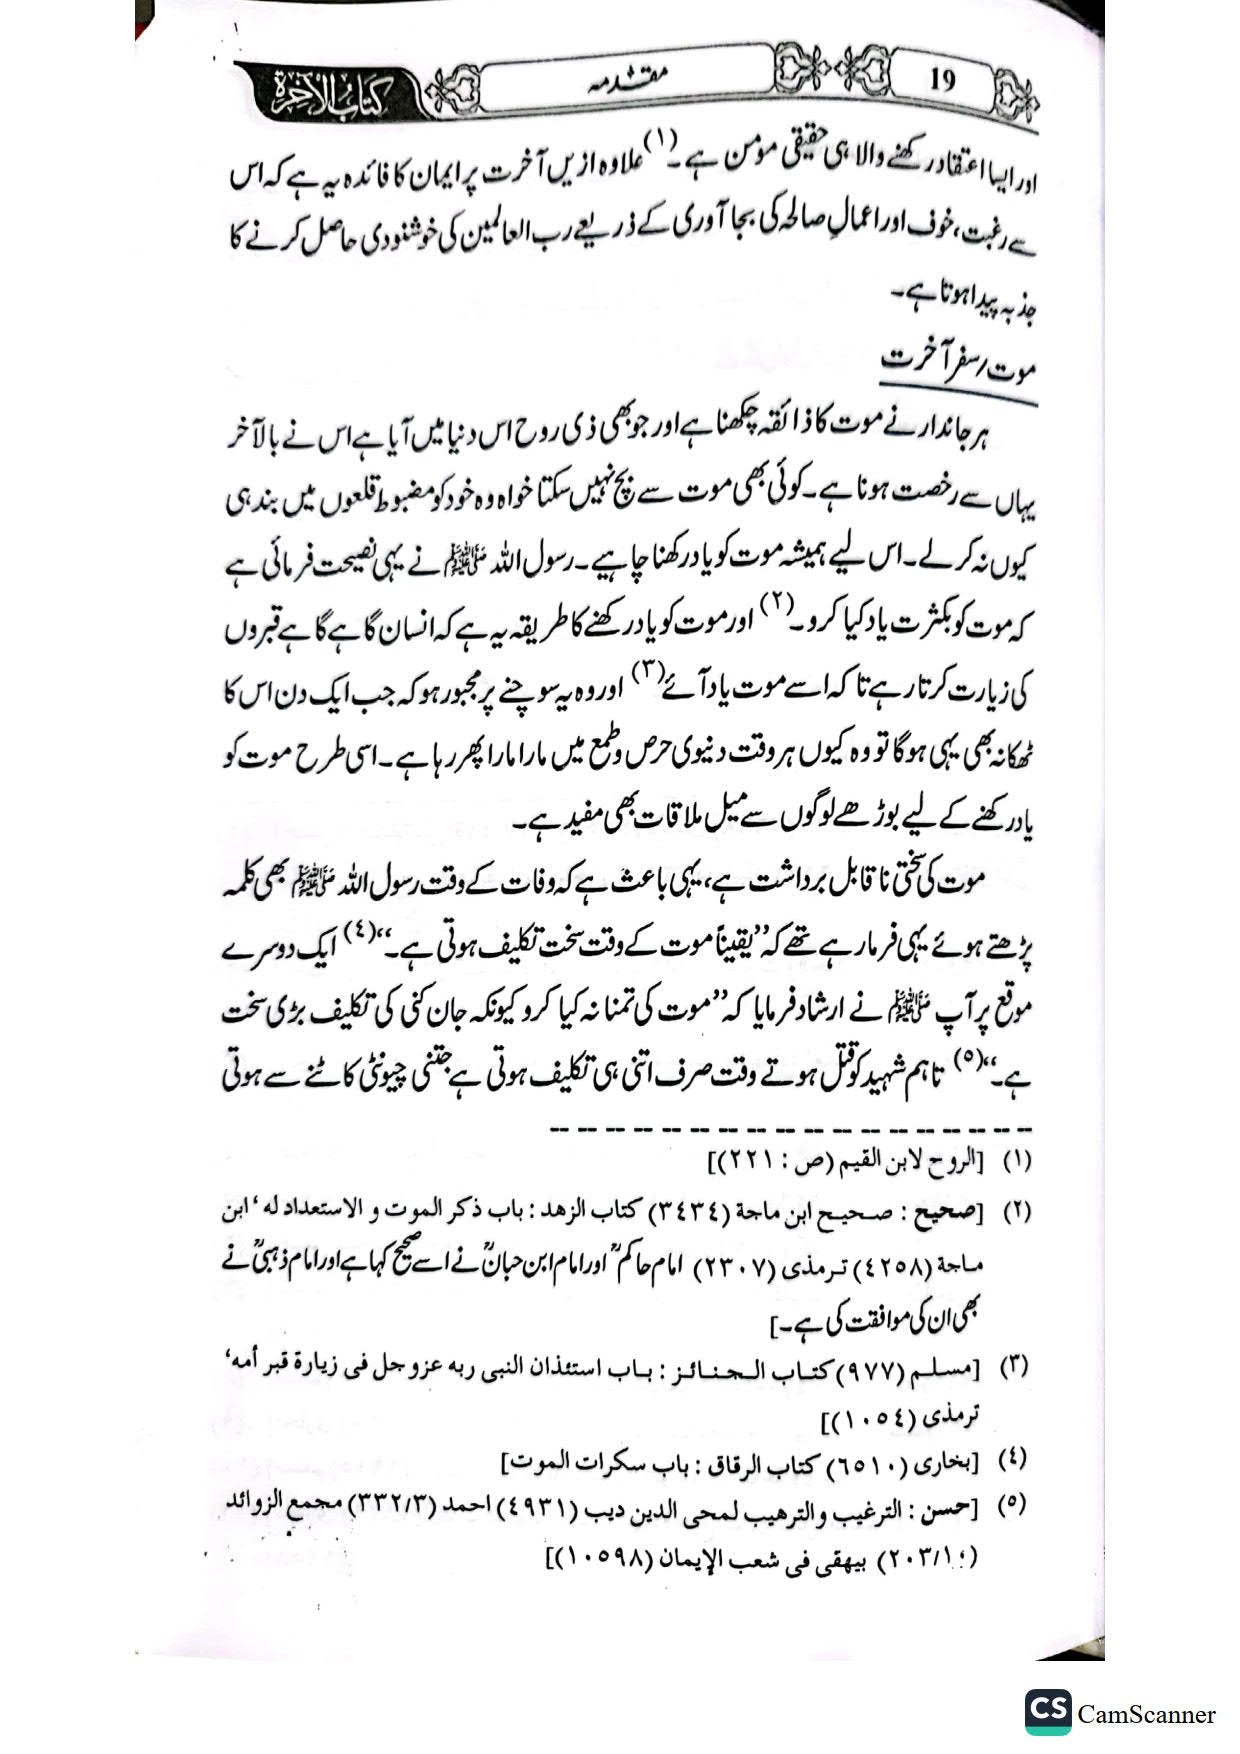 19 مقدمہ کتاب الآخرة
اور ایسا اعتقاد رکھنے والا ہی حقیقی مومن ہے۔(۱) علاوہ ازیں آخرت پر ایمان کا فائدہ یہ ہے کہ اس
سے رغبت، خوف اور اعمالِ صالحہ کی بجا آوری کے ذریعے رب العالمین کی خوشنودی حاصل کرنے کا
جذبہ پیدا ہوتا ہے۔
موت/سفر آخرت
ہر جاندار نے موت کا ذائقہ چکھنا ہے اور جو بھی ذی روح اس دنیا میں آیا ہے اس نے بالآخر
یہاں سے رخصت ہونا ہے۔ کوئی بھی موت سے بچ نہیں سکتا خواہ وہ خود کو مضبوط قلعوں میں بند ہی
کیوں نہ کر لے۔ اس لیے ہمیشہ موت کو یاد رکھنا چاہیے۔ رسول اللہ ﷺ نے یہی نصیحت فرمائی ہے
کہ موت کو بکثرت یاد کیا کرو۔(۲) اور موت کو یاد رکھنے کا طریقہ یہ ہے کہ انسان گاہے گاہے قبروں
کی زیارت کرتا رہے تا کہ اسے موت یاد آئے(۳) اور وہ یہ سوچنے پر مجبور ہو کہ جب ایک دن اس کا
ٹھکانہ بھی یہی ہوگا تو وہ کیوں ہر وقت دنیوی حرص و طمع میں مارا مارا پھر رہا ہے۔ اسی طرح موت کو
یاد رکھنے کے لیے بوڑھے لوگوں سے میل ملاقات بھی مفید ہے۔
موت کی سختی ناقابل برداشت ہے، یہی باعث ہے کہ وفات کے وقت رسول اللہ ﷺ بھی کلمہ
پڑھتے ہوئے یہی فرما رہے تھے کہ ”یقیناً موت کے وقت سخت تکلیف ہوتی ہے۔“(٤) ایک دوسرے
موقع پر آپ ﷺ نے ارشاد فرمایا کہ ”موت کی تمنا نہ کیا کرو کیونکہ جان کنی کی تکلیف بڑی سخت
ہے۔“(٥) تاہم شہید کو قتل ہوتے وقت صرف اتنی ہی تکلیف ہوتی ہے جتنی چیونٹی کاٹنے سے ہوتی
(۱) [الروح لابن القيم (ص : ۲۲۱)]
(۲) [صحيح : صحيح ابن ماجة (٣٤٣٤) كتاب الزهد : باب ذكر الموت و الاستعداد له ‘ ابن
ماجة (٤٢٥٨) ترمذى (٢٣٠٧) امام حاکمؒ اور امام ابن حبانؒ نے اسے صحیح کہا ہے اور امام ذہبیؒ نے
بھی ان کی موافقت کی ہے۔]
(۳) [مسلم (۹۷۷) كتاب الجنائز : باب استئذان النبى ربه عزوجل فى زيارة قبر أمه ‘
ترمذى (١٠٥٤)]
(٤) [بخارى (٦٥١٠) كتاب الرقاق : باب سكرات الموت]
(٥) [حسن : الترغيب والترهيب لمحى الدين ديب (٤٩٣١) احمد (٣٣٢/٣) مجمع الزوائد
(٢٠٣/١٠) بيهقى فى شعب الإيمان (١٠٥٩٨)]
CS CamScanner